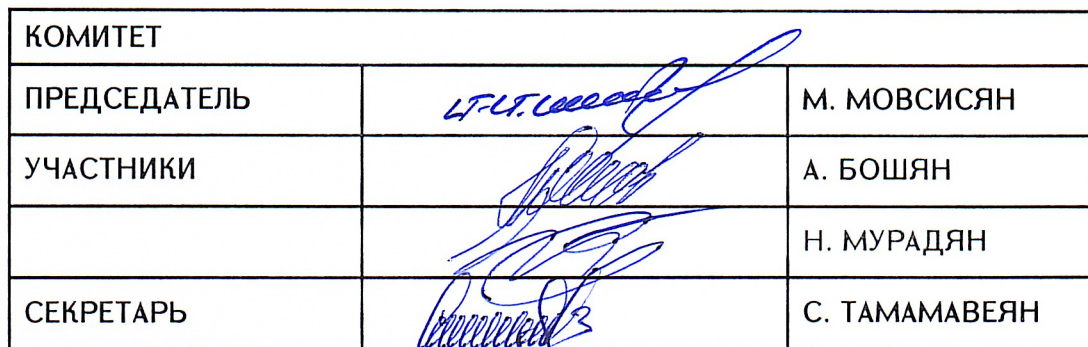 КОМИТЕТ
ПРЕДСЕДАТЕЛЬ М. МОВСИСЯН
УЧАСТНИКИ А. БОШЯН
Н. МУРАДЯН
СЕКРЕТАРЬ С. ТАМАМАВЕЯН